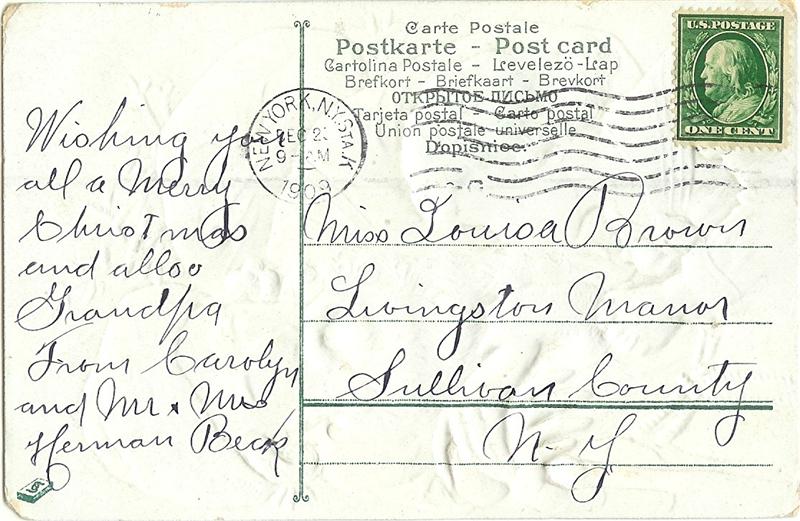 Carte Postale
Postkarte - Post card
Cartolina Postale - Levelezö-Lap
Brefkort - Briefkaart - Brevkort
ОТКРЫТОЕ ПИСЬМО
Tarjeta postal - Carto postal
Union postale universelle
Dopisnice.
U.S. POSTAGE
ONE CENT
NEW YORK, N.Y. STA. K
DEC 2
9- M
1909
Wishing you
all a Merry
Christmas
and alloo
Grandpa
From Carolyn
and Mr & Mrs
Herman Beck
Miss Louisa Brown
Livingston Manor
Sullivan County
N. Y